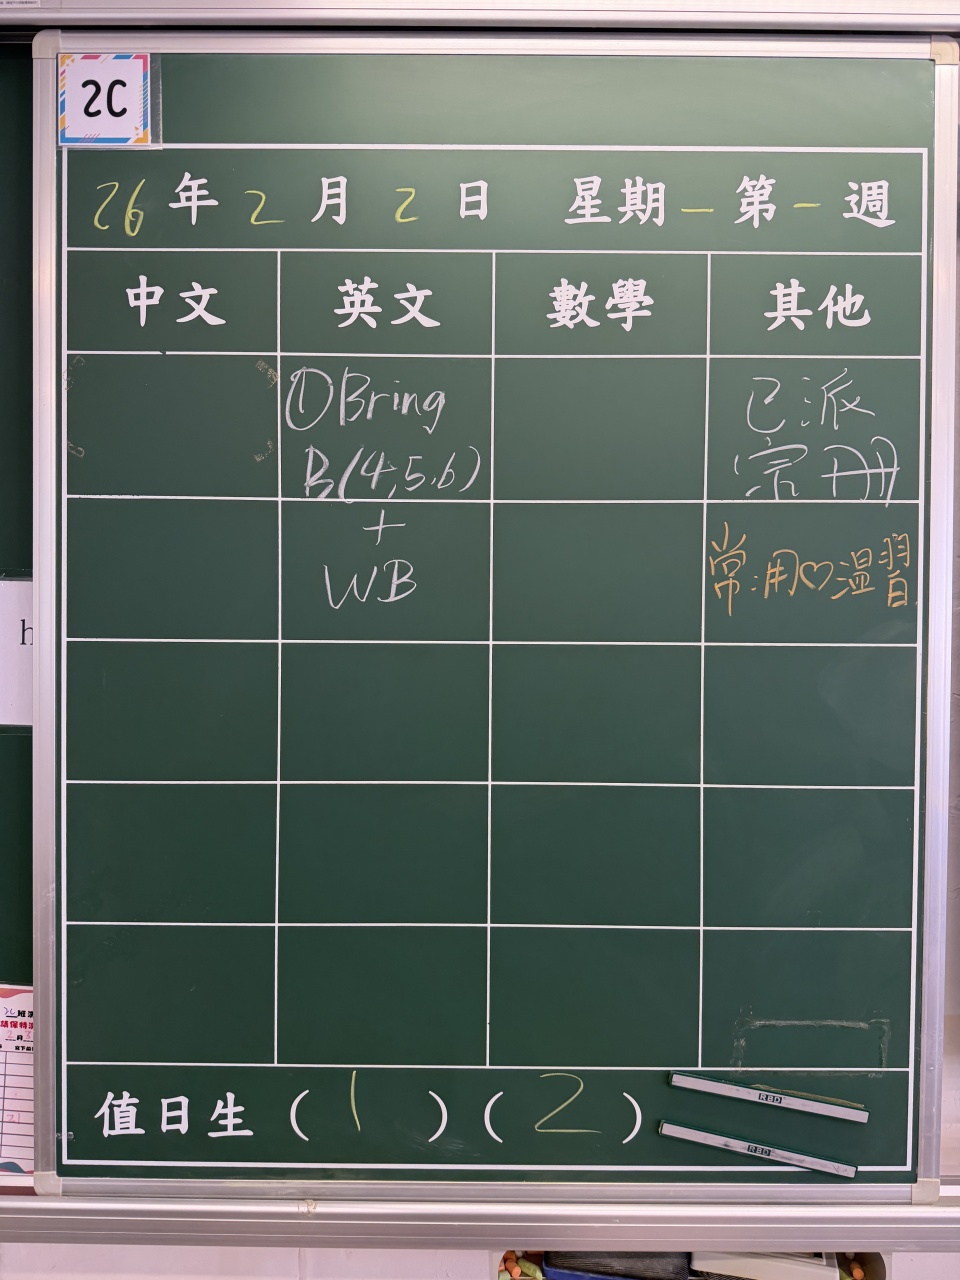 2C
26年2月2日 星期一 第一週
中文 英文 數學 其他
①Bring
B(4,5,6)
+
WB
已派
家冊
常用♡溫習
值日生（1）（2）
RBD
RBD
h